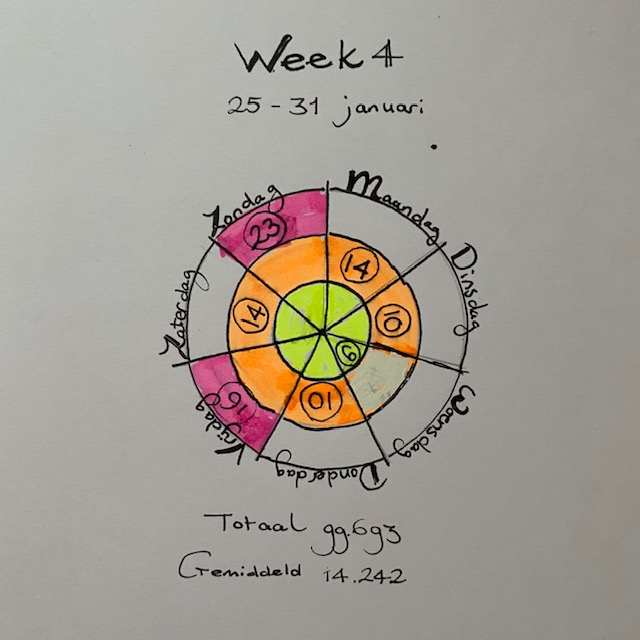 Week 4
25 - 31 januari
Maandag
14
Dinsdag
10
Woensdag
9
Donderdag
10
Vrijdag
16
Zaterdag
14
Zondag
23
Totaal 99.693
Gemiddeld 14.242